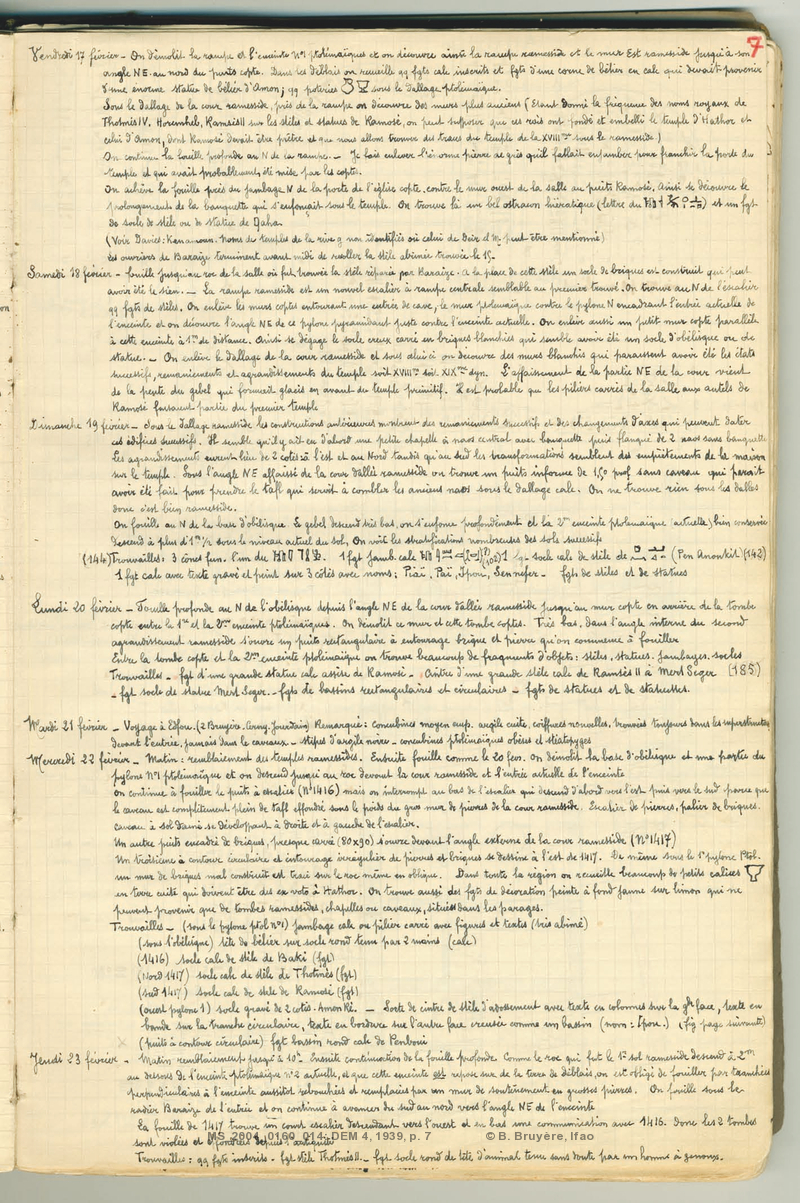 7
Vendredi 17 février - On démolit la rampe et l'enceinte n°1 ptolémaïques et on découvre ainsi la rampe ramesside et le mur Est ramesside jusqu'à son
angle NE. au nord du puits copte. Dans les déblais on recueille qq fgts calc inscrits et fgts d'une corne de bélier en calc qui devait provenir
d'une énorme statue de bélier d'Amon; qq poteries sous le dallage ptolémaïque.
Sous le dallage de la cour ramesside, près de la rampe on découvre des murs plus anciens (Etant donné la fréquence des noms royaux de
Thotmès IV. Horemheb, Ramsès II sur les stèles et statues de Ramosé, on peut supposer que ces rois ont fondé et embelli le temple d'Hathor et
celui d'Amon, dont Ramosé devait être prêtre et que nous allons trouver des traces du temple de la XVIIIme sous le ramesside)
On continue la fouille profonde au N de la rampe. - Je fais enlever l'énorme pierre de grès qu'il fallait enjamber pour franchir la porte du
temple et qui avait probablement été mise par les coptes.
On achève la fouille près du jambage N de la porte de l'église copte, contre le mur ouest de la salle au puits Ramosé. Ainsi se découvre le
prolongement de la banquette qui s'enfonçait sous le temple. On trouve là un bel ostracon hiératique (lettre du et un fgt
de socle de stèle ou de statue de Qaha.
(Voir Davies: Kenamoun. Noms de temples de la rive g non identifiés où celui de Deir el M. peut être mentionné)
Les ouvriers de Baraize terminent avant midi de recoller la stèle abimée trouvée le 15.
Samedi 18 février - fouille jusqu'au roc de la salle où fut trouvée la stèle réparée par Baraize. A la place de cette stèle un socle de briques est construit qui peut
avoir été le sien. - La rampe ramesside est un nouvel escalier à rampe centrale semblable au premier trouvé. On trouve au N de l'escalier
qq fgts de stèles. On enlève les murs coptes entourant une entrée de cave, le mur ptolémaïque contre le pylone N encadrant l'entrée actuelle de
l'enceinte et on découvre l'angle NE de ce pylone pyramidant juste contre l'enceinte actuelle. On enlève aussi un petit mur copte parallèle
à cette enceinte à 1m de distance. Ainsi se dégage le socle creux carré en briques blanchies qui semble avoir été un socle d'obélisque ou de
statue. - On enlève le dallage de la cour ramesside et sous celui ci on découvre des murs blanchis qui paraissent avoir été les états
successifs, remaniements et agrandissements du temple soit XVIIIme soit XIXme dyn. L'affaissement de la partie NE de la cour vient
de la pente du gebel qui formait glacis en avant du temple primitif. Il est probable que les piliers carrés de la salle aux autels de
Ramosé faisaient partie du premier temple
Dimanche 19 février - Sous le dallage ramesside les constructions antérieures montrent des remaniements successifs et des changements d'axes qui peuvent dater
ces édifices successifs. Il semble qu'il y ait eu d'abord une petite chapelle à naos central avec banquette puis flanqué de 2 naos sans banquette
Les agrandissements eurent lieu de 2 cotés à l'est et au Nord tandis qu'au sud les transformations semblent des empiètements de la maison
sur le temple. Sous l'angle NE affaissé de la cour dallée ramesside on trouve un puits informe de 1,50 prof sans caveau qui parait
avoir été fait pour prendre le tafl qui servit à combler les anciens naos sous le dallage calc. On ne trouve rien sous les dalles
donc c'est bien ramesside.
On fouille au N de la base d'obélisque. Le gebel descend très bas, on s'enfonce profondément et la 2me enceinte ptolémaïque (actuelle) bien conservée
descend à plus d'1m 1/2 sous le niveau actuel du sol. On voit les stratifications nombreuses des sols successifs
(144) Trouvailles: 3 cones fun. l'un du 1 fgt jamb. calc 1 fgt socle calc de stèle de (Pen Anoukit) (142)
1 fgt calc avec texte gravé et peint sur 3 côtés avec noms; Piaï, Paï, Ipou, Sennefer - fgts de stèles et de statues
Lundi 20 février - Fouille profonde au N de l'obélisque depuis l'angle NE de la cour dallée ramesside jusqu'au mur copte en arrière de la tombe
copte entre la 1re et la 2me enceinte ptolémaïques. On démolit ce mur et cette tombe coptes. Très bas, dans l'angle interne du second
agrandissement ramesside s'ouvre un puits rectangulaire à entourage brique et pierre qu'on commence à fouiller
Entre la tombe copte et la 2me enceinte ptolémaïque on trouve beaucoup de fragments d'objets: stèles, statues, jambages, socles
Trouvailles - fgt d'une grande statue calc assise de Ramosé - Cintre d'une grande stèle calc de Ramsès II à Mert Seger (185)
- fgt socle de statue Mert Seger. - fgts de bassins rectangulaires et circulaires - fgts de statues et de statuettes.
Mardi 21 février - Voyage à Edfou. (2 Bruyère, Arny, Jourdain) Remarque: Concubines moyen emp. argile cuite, coiffures nouvelles, trouvées toujours dans les superstructures
devant l'entrée, jamais dans le caveaux - stèles d'argile noire - concubines ptolémaïques obèses et stéatopyges
Mercredi 22 février - Matin: remblaiement des temples ramessides. Ensuite fouille comme le 20 fév. On démolit la base d'obélisque et une partie du
pylone N°1 ptolémaïque et on descend jusqu'au roc devant la cour ramesside et l'entrée actuelle de l'enceinte
On continue à fouiller le puits à escalier (N°1416) mais on interrompt au bas de l'escalier qui descend d'abord vers l'est puis vers le sud parce que
le caveau est complètement plein de tafl effondré sous le poids du gros mur de pierres de la cour ramesside. Escalier de pierres, palier de briques.
Caveau à sol damé se développant à droite et à gauche de l'escalier.
Un autre puits encadré de briques, presque carré (80x90) s'ouvre devant l'angle externe de la cour ramesside (N°1417)
Un troisième à contour circulaire et entourage irrégulier de pierres et briques se dessine à l'est de 1417. De même sous le 1er pylone Ptol.
un mur de briques mal construit est tracé sur le roc même en oblique. Dans toute la région on recueille beaucoup de petits calices
en terre cuite qui doivent être des ex voto à Hathor. On trouve aussi des fgts de décoration peinte à fond jaune sur limon qui ne
peuvent provenir que de tombes ramessides, chapelles ou caveaux, situées dans les parages.
Trouvailles - (sous le pylone ptol n°1) jambage calc ou pilier carré avec figures et textes (très abimé)
(sous l'obélisque) tête de bélier sur socle rond tenu par 2 mains (calc)
(1416) socle calc de stèle de Baki (fgt)
(Nord 1417) socle calc de stèle de Thotmès (fgt)
(sud 1417) socle calc de stèle de Ramosé (fgt)
(ouest pylone 1) socle gravé de 2 cotés. Amonké. - Sorte de cintre de stèle d'adossement avec texte en colonnes sur la gde face, texte en
bande sur la tranche circulaire, texte en bordure sur l'autre face creusée comme un bassin (nom: Ipou.) (fig page suivante)
(puits à contour circulaire) fgt bassin rond calc de Penboui
Jeudi 23 février - Matin remblaiement jusqu'à 10h. Ensuite continuation de la fouille profonde. Comme le roc qui fut le 1er sol ramesside descend à 2m
au dessous de l'enceinte ptolémaïque n°2 actuelle, et que cette enceinte est reposée sur de la terre de déblais, on est obligé de fouiller par tranchées
perpendiculaires à l'enceinte aussitôt rebouchées et remplacées par un mur de soutènement en grosses pierres. On fouille sous le
radier Baraize de l'entrée et on continue à avancer du sud au nord vers l'angle NE de l'enceinte
La fouille de 1417 trouve un court escalier descendant vers l'ouest et en bas une communication avec 1416. Donc les 2 tombes
sont violées et effondrées depuis l'antiquité
Trouvailles: qq fgts inscrits - fgt stèle Thotmès II. - fgt socle rond de tête d'animal tenu sans doute par un homme à genoux.
MS_2004_0160_014: DEM 4, 1939, p. 7 © B. Bruyère, Ifao